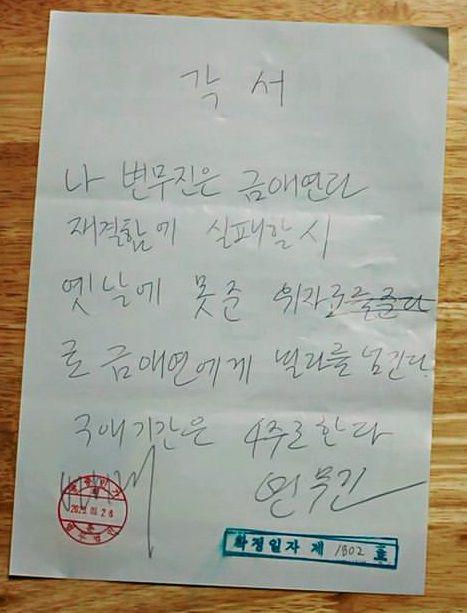 각 서
나 변무진은 금애연과
재결합에 실패할 시
옛날에 못준 위자료를준다
로 금애연에게 빌라를 넘긴다.
구애기간은 4주로 한다
변무진
확정일자 제 1802 호